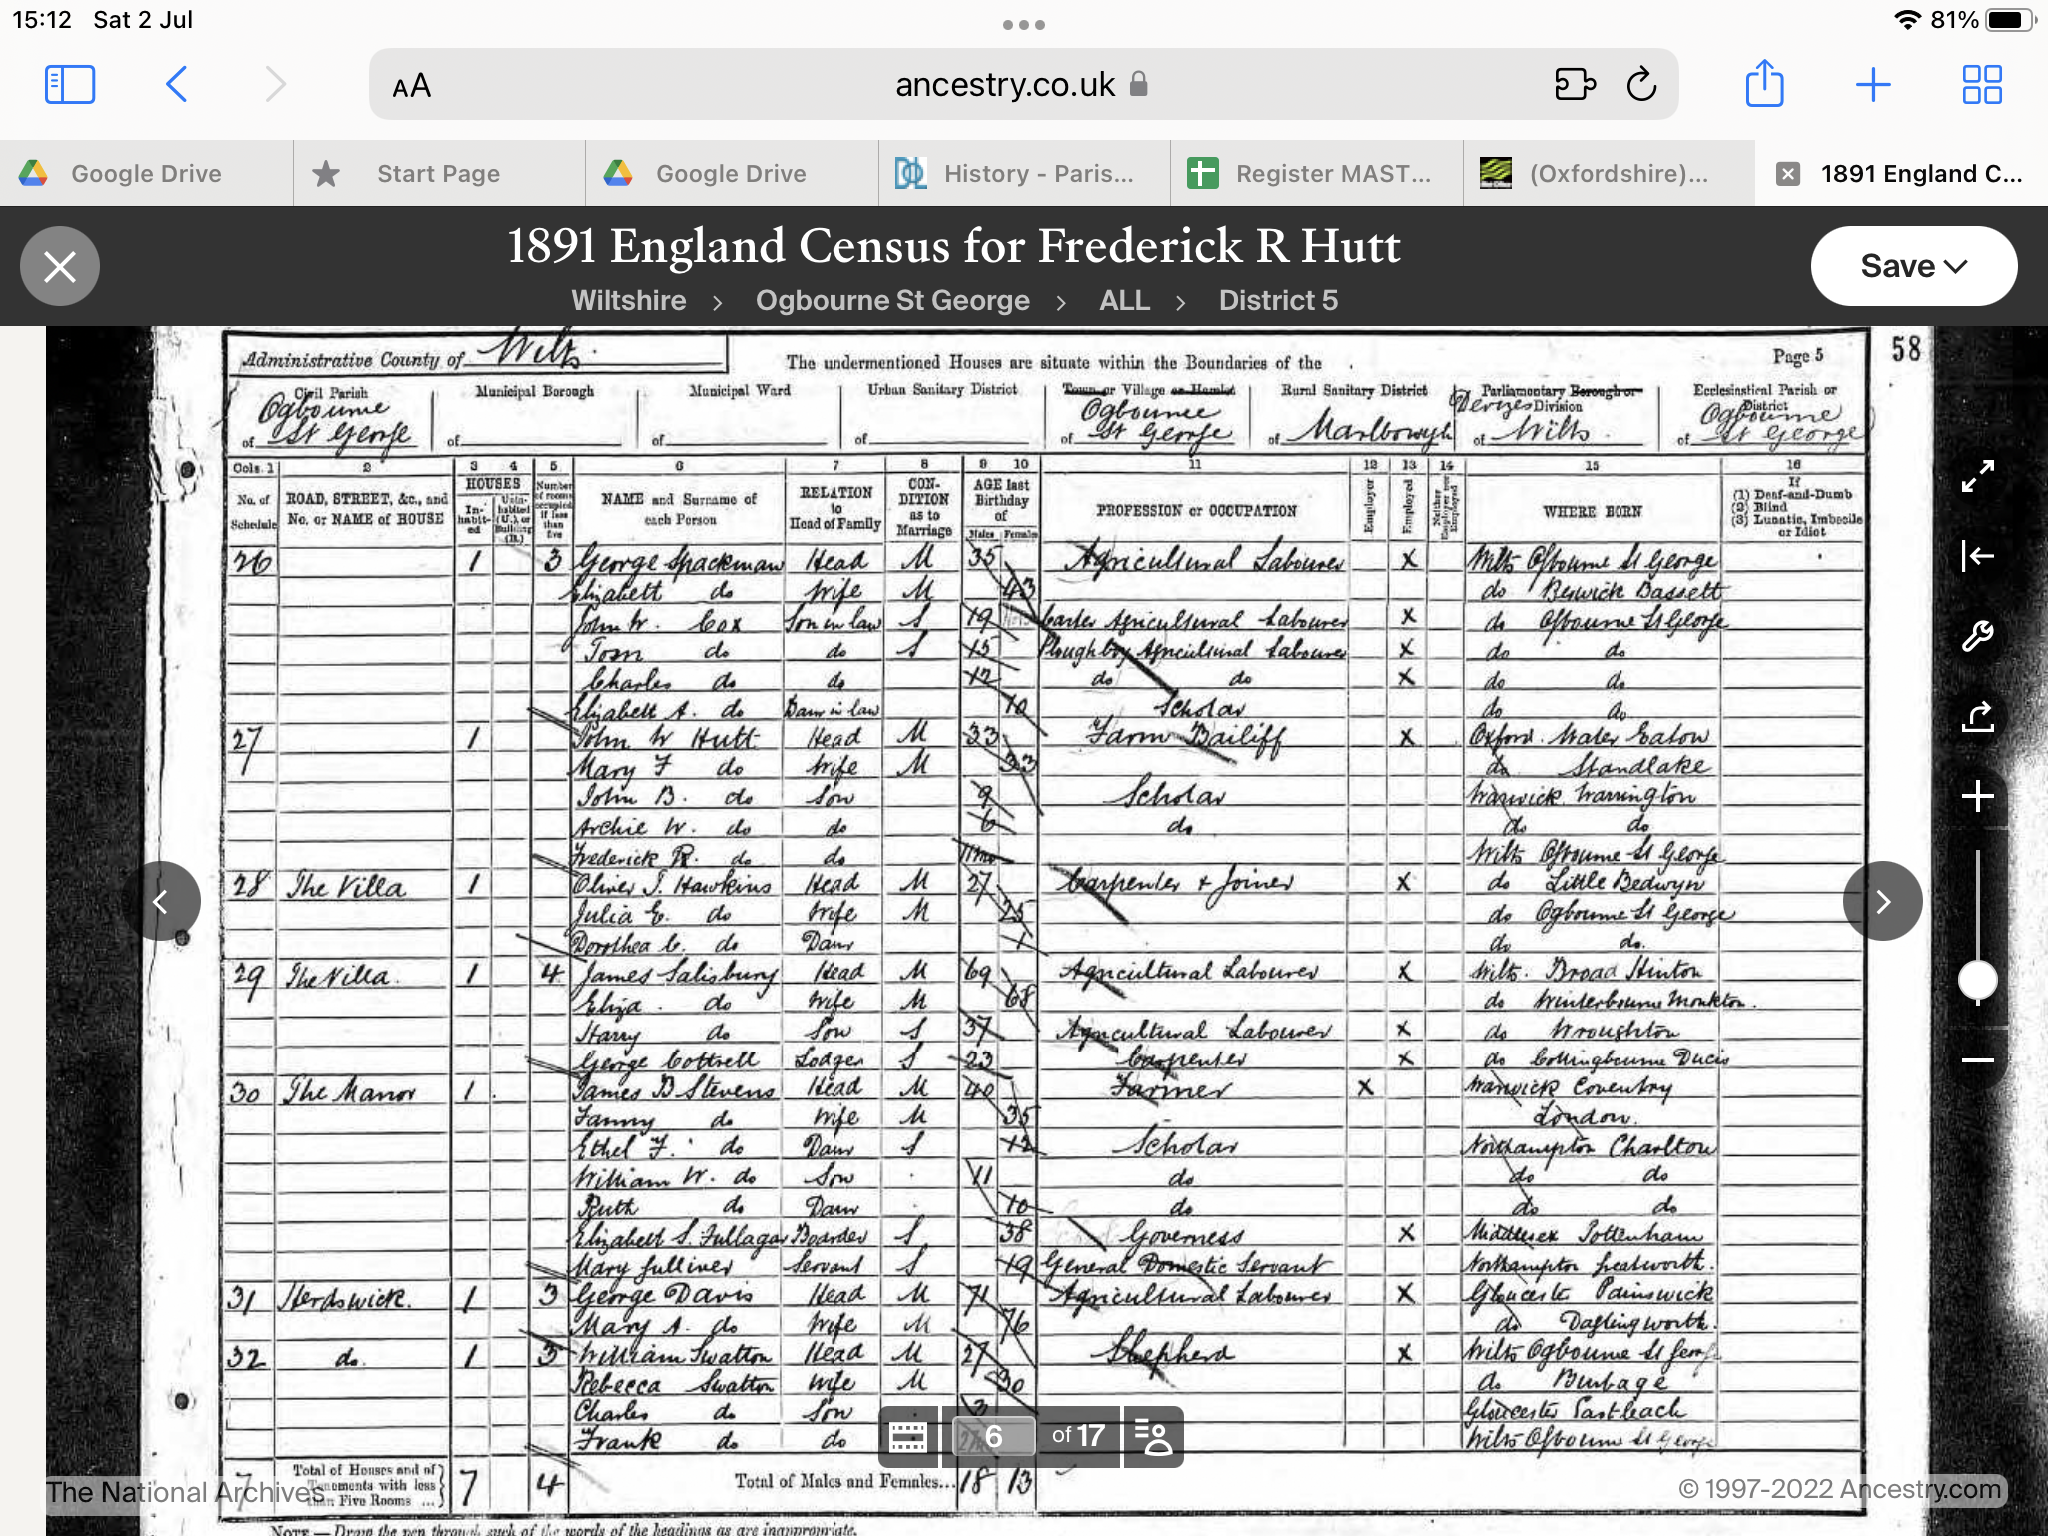 15:12 Sat 2 Jul 81%
AA ancestry.co.uk
Google Drive Start Page Google Drive History - Paris... Register MAST... (Oxfordshire)... 1891 England C...
1891 England Census for Frederick R Hutt
Save
Wiltshire > Ogbourne St George > ALL > District 5
Administrative County of Wilts. The undermentioned Houses are situate within the Boundaries of the Page 5 58
Civil Parish Municipal Borough Municipal Ward Urban Sanitary District Town or Village or Hamlet Rural Sanitary District Parliamentary Borough or Division Ecclesiastical Parish or District
of Ogbourne St George of of of of Ogbourne St George of Marlborough Devizes of Wilts of Ogbourne St George
Cols. 1 2 3 4 5 6 7 8 9 10 11 12 13 14 15 16
No. of Schedule ROAD, STREET, &c., and No. or NAME of HOUSE HOUSES Inhabited Uninhabited (U.), or Building (B.) Number of rooms occupied if less than five NAME and Surname of each Person RELATION to Head of Family CONDITION as to Marriage AGE last Birthday of Males Females PROFESSION or OCCUPATION Employer Employed Neither Employer nor Employed WHERE BORN If (1) Deaf-and-Dumb (2) Blind (3) Lunatic, Imbecile or Idiot
26 1 3 George Spackman Head M 35 Agricultural Labourer X Wilts Ogbourne St George
Elizabeth do Wife M 43 do Berwick Bassett
John W. Cox Son in law S 19 Carter Agricultural Labourer X do Ogbourne St George
Tom do do S 15 Ploughboy Agricultural Labourer X do do
Charles do do 12 do do X do do
Elizabeth A. do Daur in law 10 Scholar do do
27 1 John W Hutt Head M 33 Farm Bailiff X Oxford. Water Eaton
Mary F do Wife M 33 do Standlake
John B. do Son 9 Scholar Warwick Warrington
Archie W. do do 6 do do do
Frederick R. do do 11mo Wilts Ogbourne St George
28 The Villa 1 Oliver J. Hawkins Head M 27 Carpenter & Joiner X do Little Bedwyn
Julia E. do Wife M 25 do Ogbourne St George
Dorothea C. do Daur 1 do do.
29 The Villa. 1 4 James Salisbury Head M 69 Agricultural Labourer X Wilts. Broad Hinton
Eliza. do Wife M 68 do Winterbourne Monkton.
Harry do Son S 37 Agricultural Labourer X do Wroughton
George Cottrell Lodger S 23 Carpenter X do Collingbourne Ducis
30 The Manor 1 James B Stevens Head M 40 Farmer X Warwick Coventry
Fanny do Wife M 35 London.
Ethel F. do Daur S 12 Scholar Northampton Charlton
William W. do Son 11 do do do
Ruth do Daur 10 do do do
Elizabeth S. Fullagar Boarder S 38 Governess X Middlesex Tottenham
Mary Gulliver Servant S 19 General Domestic Servant Northampton Greatworth.
31 Herdswick. 1 3 George Davis Head M 71 Agricultural Labourer X Gloucester Painswick
Mary A. do Wife M 76 do Daglingworth.
32 do. 1 3 William Swatton Head M 27 Shepherd X Wilts Ogbourne St George
Rebecca Swatton Wife M 30 do Burbage
Charles do Son 3 Gloucester Eastleach
Frank do do Wilts Ogbourne St George
6 of 17
7 Total of Houses and of Tenements with less than Five Rooms ... 7 4 Total of Males and Females... 18 13
The National Archives © 1997-2022 Ancestry.com
NOTE.—Draw the pen through such of the words of the headings as are inappropriate.